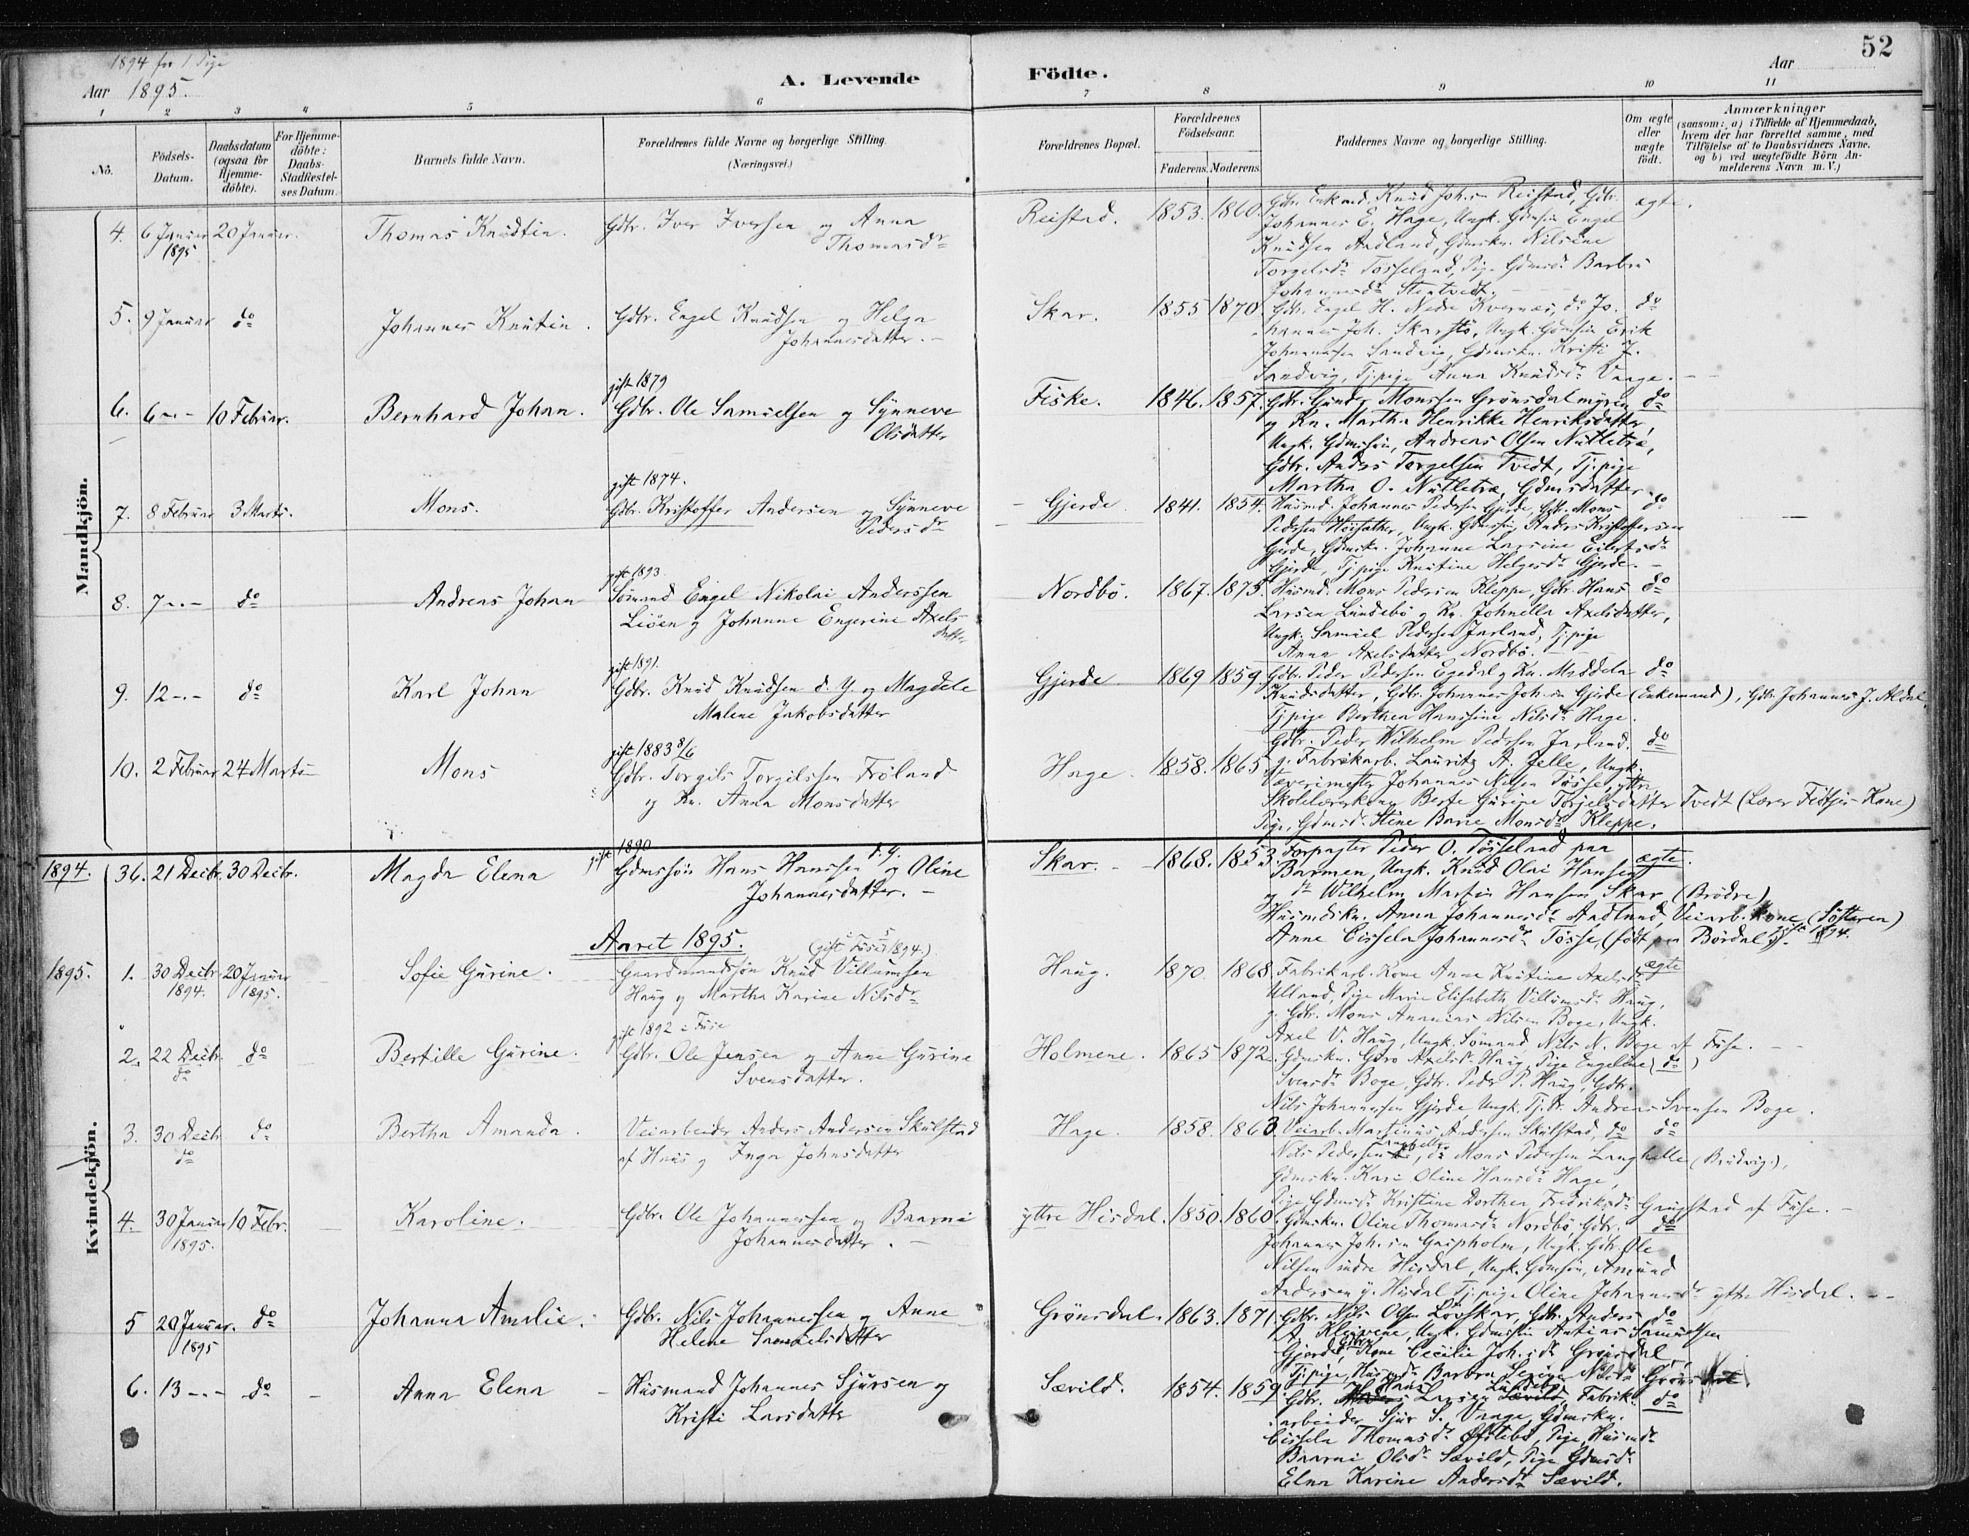 52
1894 for 1 Pige
Aar 1895.
A. Levende Födte.
Aar
1 2 3 4 5 6 7 8 9 10 11
No.
Födsels-Datum.
Daabsdatum (ogsaa for Hjemme-döbte).
For Hjemme-döbte: Daabs-Stadfæstel-ses Datum.
Barnets fulde Navn.
Forældrenes fulde Navne og borgerlige Stilling. (Næringsvei.)
Forældrenes Bopæl.
Forældrenes Födselsaar.
Faderens. Moderens.
Faddernes Navne og borgerlige Stilling.
Om ægte eller uægte födt.
Anmærkninger
(saasom: a) i Tilfælde af Hjemmedaab, hvem der har forrettet samme, med Tilföielse af to Daabsvidners Navne. og b) ved uægtefödte Börn An-melderens Navn m. V.)
Mandkjön.
4. 6 Januar 1895 20 Januar. Thomas Knudtin Gdbr. Iver Iversen og Anna Thomasdr Reistad. 1853. 1860. ægte.
Johannes E. Hage, Ungk. Gdmsøn Engel
Knudsen Aadland, Gdmskn. Nilsine
Torgelsdr Tøsseland, Pige Gdmsdr Barbra
5. 9 Januar do Johannes Knutin. Gdbr. Engel Knudsen og Helga Johannesdatter. Skar. 1855 1870 do
Gdbr. Engel H. Nedre Kvernæs, do Jo-
hannes Joh. Skarstø, Ungk. Gdmsøn Erik
Johannessen Sandvig, Gdmskn. Kristi J.
Sandvig, Tj.pige Anna Knudsdr Vaage.
6. 6 - - 10 Februar. Bernhard Johan. gift 1879 Gdbr. Ole Samuelsen og Synneve Olsdatter Fiske. 1846. 1857. do
Gdbr. Gunder Monssen Grønsdalmyren
og Kn. Martha Henrikke Henriksdatter,
Ungk. Gdmsøn, Andreas Olsen Nutletræ,
Gdbr. Anders Torgelsen Tvedt, Tj.pige
Martha O. Nutletræ, Gdmsdatter
7. 8 Februar 3 Marts. Mons. gift 1874. Gdbr. Kristoffer Andersen og Synneve Pedersdr Gjerde. 1841. 1854. do
Husmd. Johannes Pedersen Gjerde, Gdbr. Mons
Pedersen Høisæther, Ungk. Gdmsøn, Anders Kristoffersen
Gjerde, Gdmskn. Johanne Larsine Eilertsdr
Gjerde, Tj.pige Knutine Helgesdr Gjerde.
8. 7 - - do Andreas Johan gift 1893 Sømand Engel Nikolai Anderssen Liøen og Johanne Engerine Axels-datter Nordbø. 1867. 1875. do
Husmd. Mons Pedersen Kleppe, Gdbr. Hans
Larsen Lundebø og Kn. Johnella Axelsdatter,
Ungk. Samuel Pedersen Jarland, Tj.pige
Anna Axelsdatter Nordbø.
9. 12 - - do Karl Johan gift 1891. Gdbr. Knud Knudsen d. y. og Magdele Malene Jakobsdatter Gjerde 1869 1859. do
Gdbr. Peder Pedersen Egedal og Kn. Maddela
Knudsdatter, Gdbr. Johannes Joh.sen Gjerde (Enkemand), Gdbr. Johannes J. Aldal,
Tj.pige Berthea Hanssine Nilsdr Hage.
10. 2 Februar 24 Marts Mons gift 1883 8/6 Gdbr. Torgils Torgilssen Frøland og Kn. Anna Monsdatter Hage. 1858. 1865 do
Gdbr. Peder Wilhelm Pedersen Jarland.
g. Fabrikarb. Lauritz A. Jelle, Ungk.
Væverimester Johannes Nilsen Tøsse, yttre,
Skolelærerkone Berte Gurine Torjelsdatter Tvedt (Lærer Fiøtjes Kone)
Pige, Gdmsdr Stine Barre Monsdr Kleppe.
1894. 36. 21 Decbr. 30 Decbr. Magda Elena gift 1890 Gdmssøn Hans Hanssen d. y. og Oline Johannesdatter. Skar. 1868. 1853. ægte.
Forpagter Peder O. Tøsseland paa
Barmen, Ungk. Knud Olai Hansen
og do Wilhelm Martin Hansen Skar, (Brødre)
Husmdskn. Anna Johannesdr Aadland, Veiarb. Kone (Søsteren)
Anne Cissela Johannesdr Tøsse (født paa Børdal) gift 1894.
Kvindekjön.
Aaret 1895.
1895. 1. 30 Decbr 1894. 20 Januar 1895. Sofie Gurine. (gift i Fuse 1894.) Gaardmandssøn Knud Villumsen Haug og Martha Karine Nilsdr Haug. 1870. 1868. ægte
Fabrikarb. Kone Anna Knutine Axelsdr
Ulland, Pige Marie Elisabeth Villumsdr Haug,
g. Gdbr. Mons Ananias Nilsen Boge, Ungk.
Axel V. Haug, Ungk. Sømand Nils N. Boge af Fuse.
2. 22 Decbr. do do Bertille Gurine. gift 1892 i Fuse Gdbr. Ole Jensen og Anne Gurine Svensdatter. Holmene. 1865 1872. do
Gdmskn. Guro Axelsdr Haug, Pige Engeline
Svensdr Boge, Gdbr. Peder P. Haug, Gdbr.
Nils Johannessen Gjerde Ungk. Tj.dr. Andreas Svensen Boge.
3. 30 Decbr do do Bertha Amanda. Veiarbeider Anders Andersen Skulstad af Haus og Inga Johnsdatter Hage. 1858. 1863. do
Veiarb. Martinus Andersen Skulstad, do
Nils Pedersen Langhelle, do Mons Pedersen Langhelle (Brudvig),
Gdmskn. Kari Oline Hansdr Hage,
Pige Gdmsdr Kristine Dorthea Fredriksdr Gaugstad af Fuse.
4. 30 Januar 1895. 10 Febr. Karoline. Gdbr. Ole Johannessen og Baarni Johannesdatter. yttre Hisdal. 1850. 1860. do
Gdmskn. Oline Thomasdr Nordbø Gdbr.
Johannes Joh.sen Gripholm, Ungk. Gdbr Ole
Nilsen indre Hisdal, Ungk. Gdmsøn, Amund
Andersen y. Hisdal, Tj.pige Oline Johannesdr yttre Hisdal.
5 20 Januar. 1895 do Johanna Amalie. Gdbr. Nils Johannessen og Anne Helene Samuelsdatter Grønsdal. 1863. 1871. do
Gdbr. Nils Olsen Løvskar, Gdbr. Anders
A. Kleivene, Ungk. Gdmssøn Antias Samuelsen
Gjerde, Gdbrs Kone Cecilie Joh.sdr Grønsdal,
Tj.pige, Husmdsdr Barbra Serine Nilsdr Grøns
6. 13 - - do Anna Elena Husmand Johannes Sjursen og Kristi Larsdatter Sævild. 1854. 1859 do
Gdbr. Hans Larsen Lundebø Fabrik-
arbeider Sjur S. Vaage, Gdmskn.
Cissela Thomasdr Øfstebø, Pige, Husmdr
Baarni Olsdr Sævild, Pige Gdmsdr
Elna Karine Andersdr Sævild.